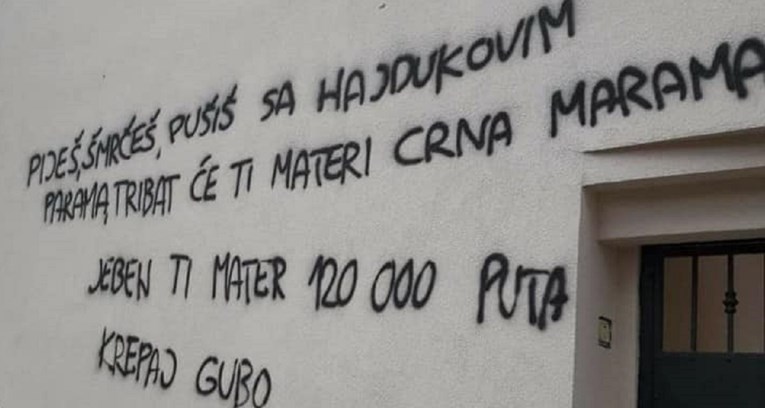 PIJEŠ, ŠMRČEŠ, PUŠIŠ SA HAJDUKOVIM
PARAMA, TRIBAT ĆE TI MATERI CRNA MARAMA
JEBEN TI MATER 120 000 PUTA
KREPAJ GUBO